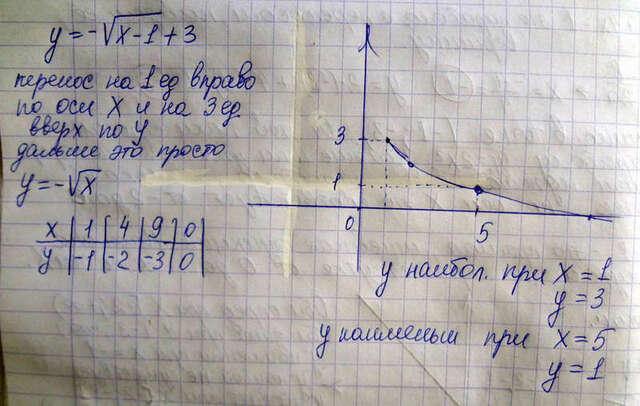 y = -√x-1 + 3
перенос на 1 ед вправо
по оси X и на 3 ед
вверх по y
дальше это просто
y = -√x
x | 1 | 4 | 9 | 0
y | -1 | -2 | -3 | 0
3
1
0
5
y наибол. при x = 1
y = 3
y наименьш при x = 5
y = 1